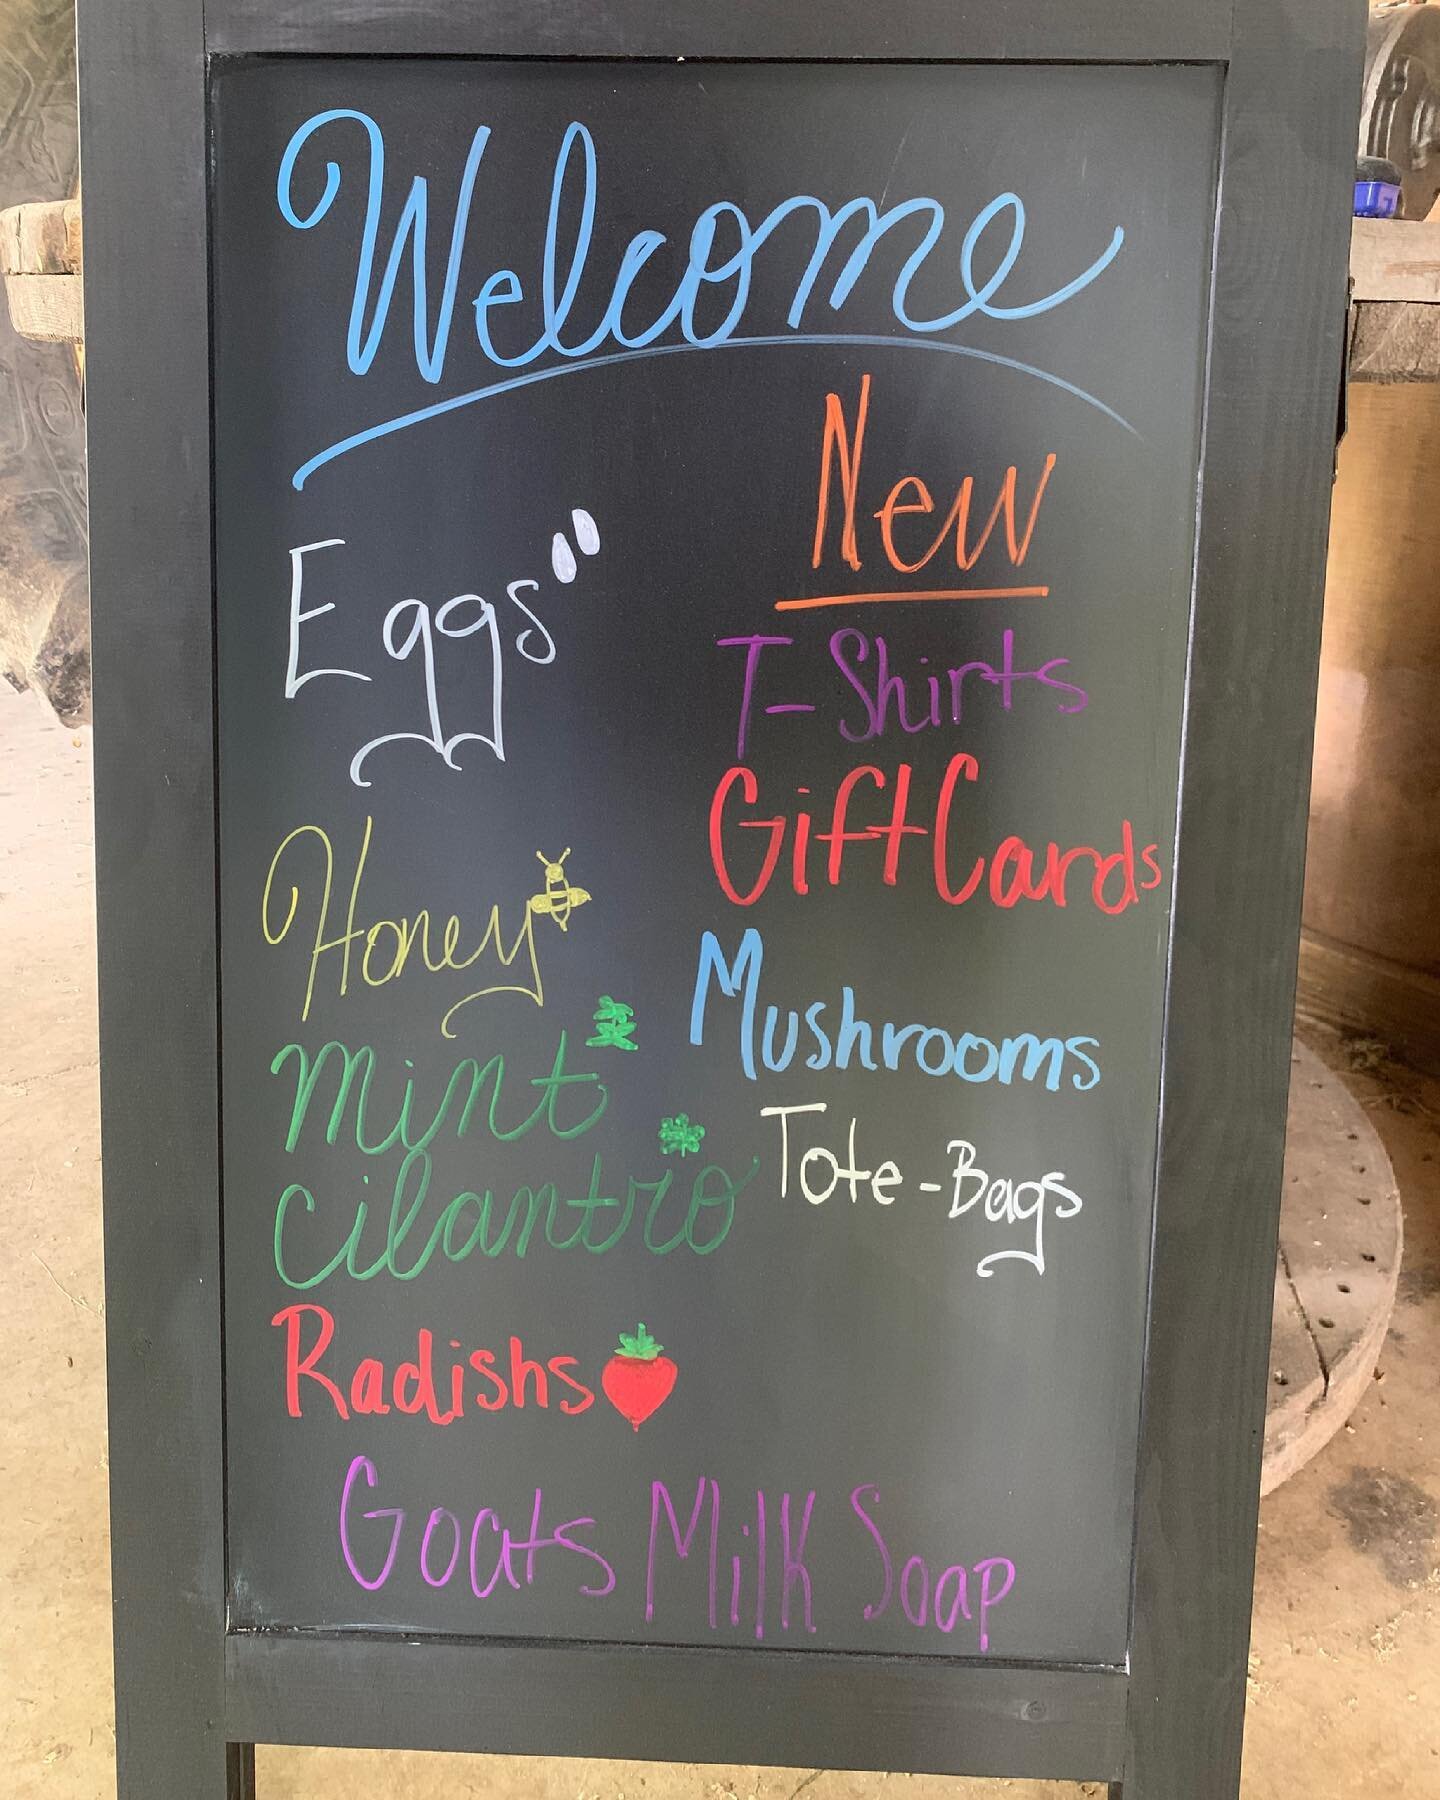 Welcome
Eggs
Honey
Mint
Cilantro
Radishs
New
T-Shirts
Gift Cards
Mushrooms
Tote-Bags
Goats Milk Soap